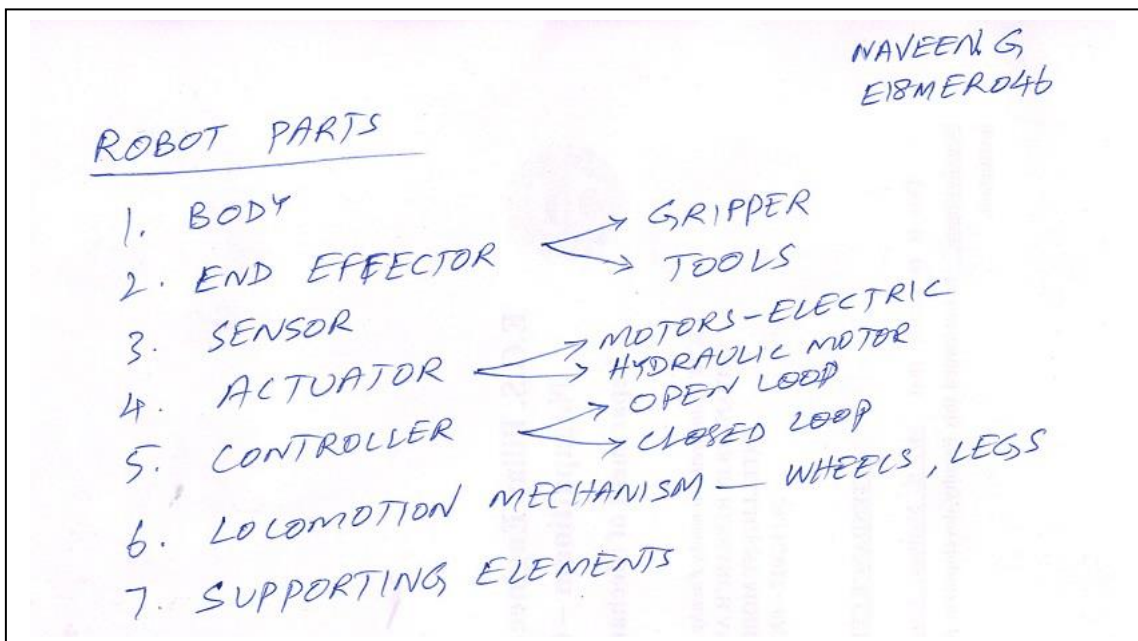 NAVEEN. G
E18MER046
ROBOT PARTS
1. BODY
2. END EFFECTOR → GRIPPER
→ TOOLS
3. SENSOR
4. ACTUATOR → MOTORS-ELECTRIC
→ HYDRAULIC MOTOR
5. CONTROLLER → OPEN LOOP
→ CLOSED LOOP
6. LOCOMOTION MECHANISM — WHEELS, LEGS
7. SUPPORTING ELEMENTS